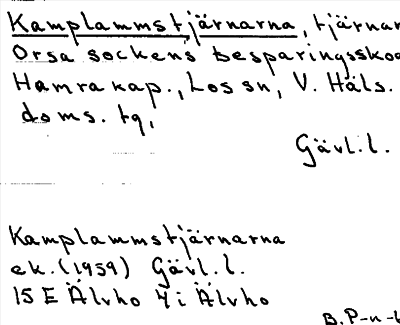 Kamplammstjärnarna, tjärnar
Orsa sockens besparingsskog
Hamra kap., Los sn, V. Häls.
doms. tg,
Gävl.l.
Kamplammstjärnarna
ek. (1959) Gävl.l.
15 E Älvho 4 i Älvho
B.P-n-